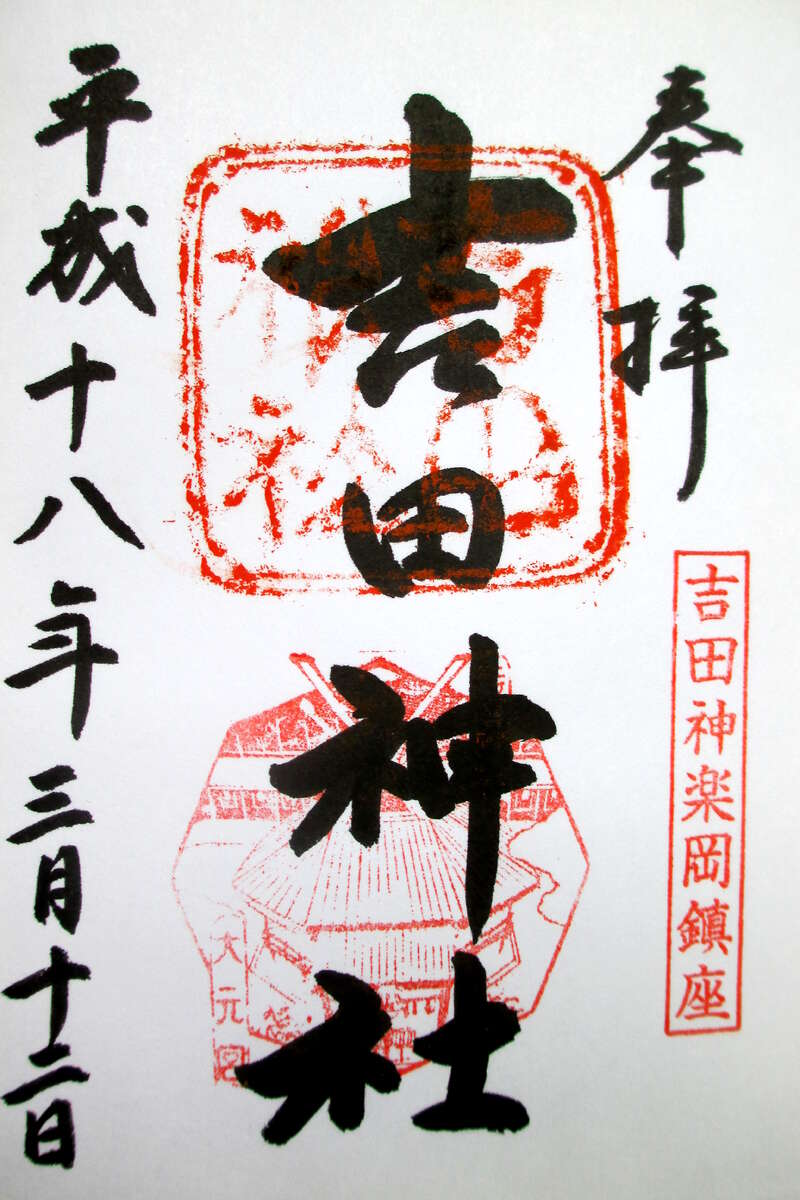 奉拝
吉田神楽岡鎮座
吉田神社
吉田神社
大元宮
平成十八年三月十二日